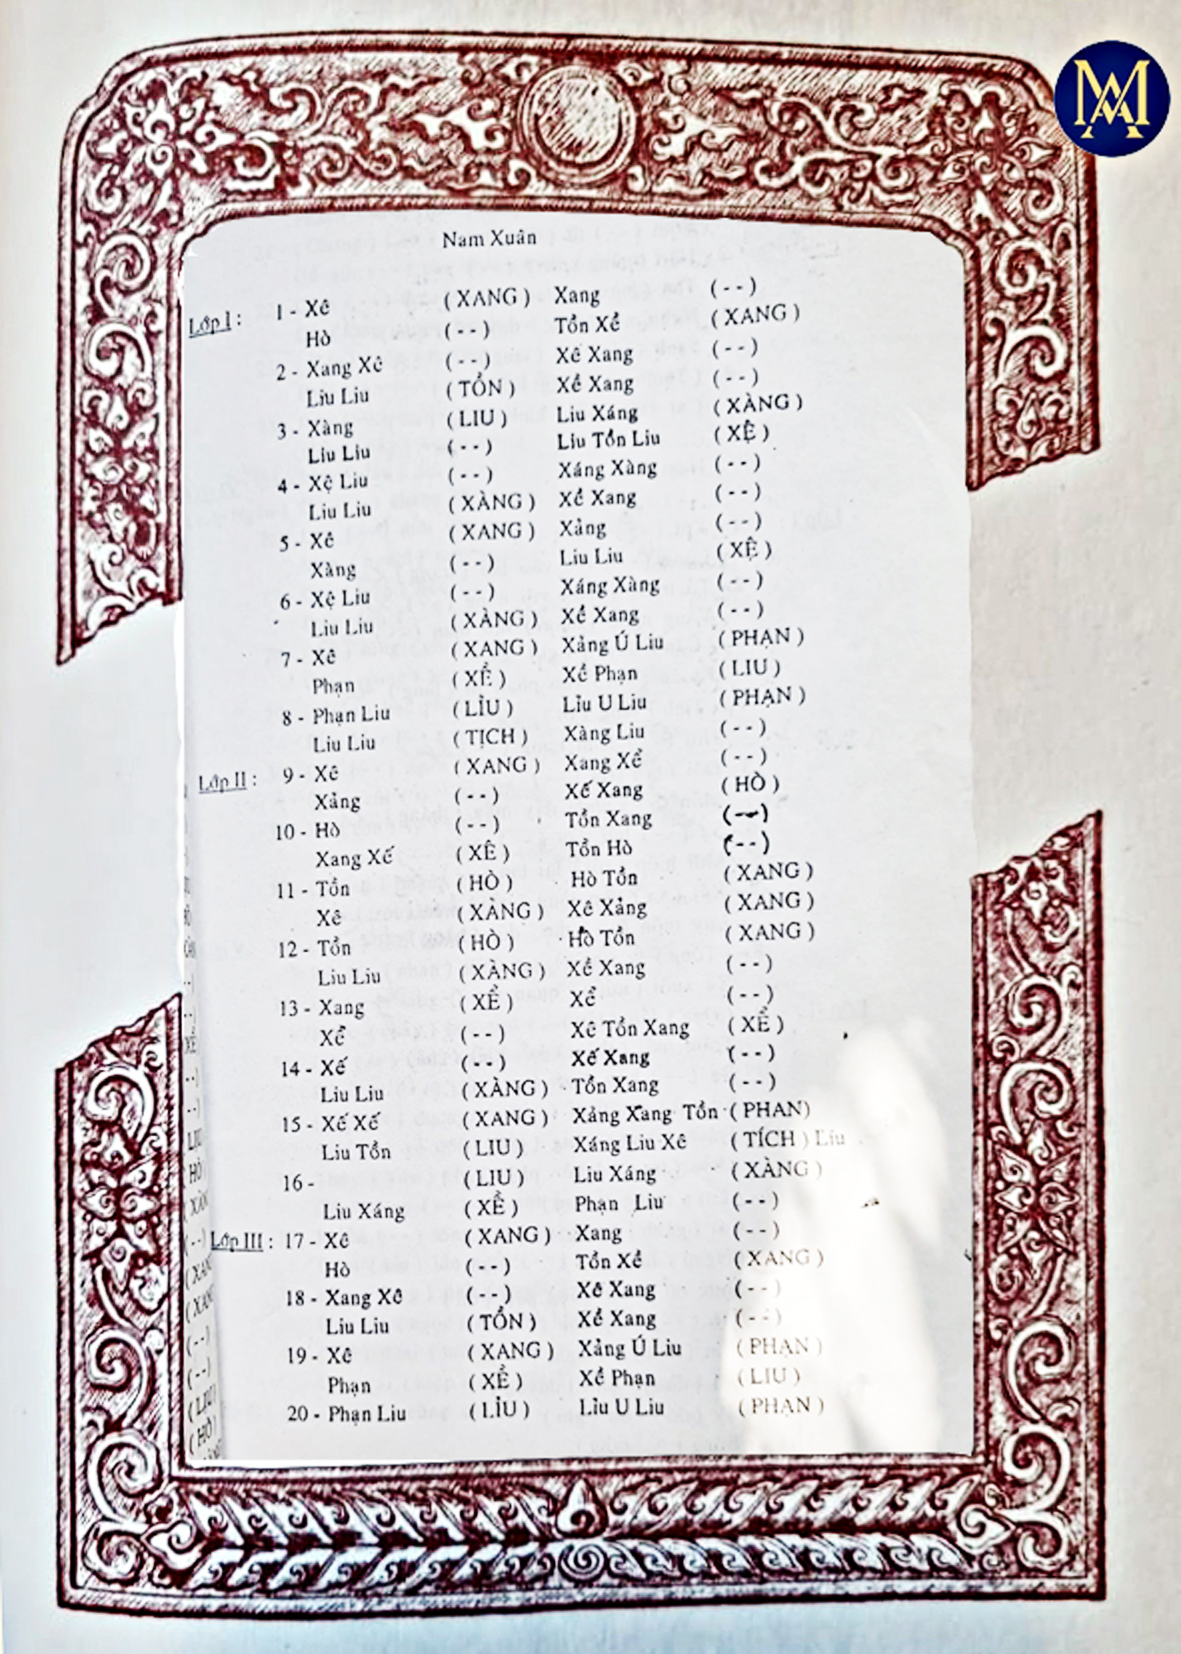 MA
Nam Xuân
Lớp I : 1 - Xê ( XANG ) Xang ( - - )
Hò ( - - ) Tồn Xề ( XANG )
2 - Xang Xê ( - - ) Xê Xang ( - - )
Liu Liu ( TỒN ) Xề Xang ( - - )
3 - Xàng ( LIU ) Liu Xáng ( XÀNG )
Liu Liu ( - - ) Liu Tồn Liu ( XỆ )
4 - Xệ Liu ( - - ) Xáng Xàng ( - - )
Liu Liu ( XÀNG ) Xề Xang ( - - )
5 - Xê ( XANG ) Xảng ( - - )
Xàng ( - - ) Liu Liu ( XỆ )
6 - Xệ Liu ( - - ) Xáng Xàng ( - - )
Liu Liu ( XÀNG ) Xề Xang ( - - )
7 - Xê ( XANG ) Xảng Ú Liu ( PHẠN )
Phạn ( XỂ ) Xề Phạn ( LIU )
8 - Phạn Liu ( LỈU ) Lỉu U Liu ( PHẠN )
Liu Liu ( TỊCH ) Xàng Liu ( - - )
Lớp II : 9 - Xê ( XANG ) Xang Xể ( - - )
Xảng ( - - ) Xế Xang ( HÒ )
10 - Hò ( - - ) Tồn Xang ( - - )
Xang Xế ( XÊ ) Tồn Hò ( - - )
11 - Tồn ( HÒ ) Hò Tồn ( XANG )
Xê ( XÀNG ) Xê Xảng ( XANG )
12 - Tồn ( HÒ ) Hò Tồn ( XANG )
Liu Liu ( XÀNG ) Xề Xang ( - - )
13 - Xang ( XỂ ) Xể ( - - )
Xể ( - - ) Xê Tồn Xang ( XỂ )
14 - Xế ( - - ) Xế Xang ( - - )
Liu Liu ( XÀNG ) Tồn Xang ( - - )
15 - Xế Xế ( XANG ) Xảng Xang Tồn ( PHAN)
Liu Tồn ( LIU ) Xáng Liu Xê ( TÍCH ) Liu
16 - ( LIU ) Liu Xáng ( XÀNG )
Liu Xáng ( XỀ ) Phạn Liu ( - - )
Lớp III : 17 - Xê ( XANG ) Xang ( - - )
Hò ( - - ) Tồn Xề ( XANG )
18 - Xang Xê ( - - ) Xê Xang ( - - )
Liu Liu ( TỒN ) Xề Xang ( - - )
19 - Xê ( XANG ) Xảng Ú Liu ( PHẠN )
Phạn ( XỂ ) Xề Phạn ( LIU )
20 - Phạn Liu ( LỈU ) Lỉu U Liu ( PHẠN )